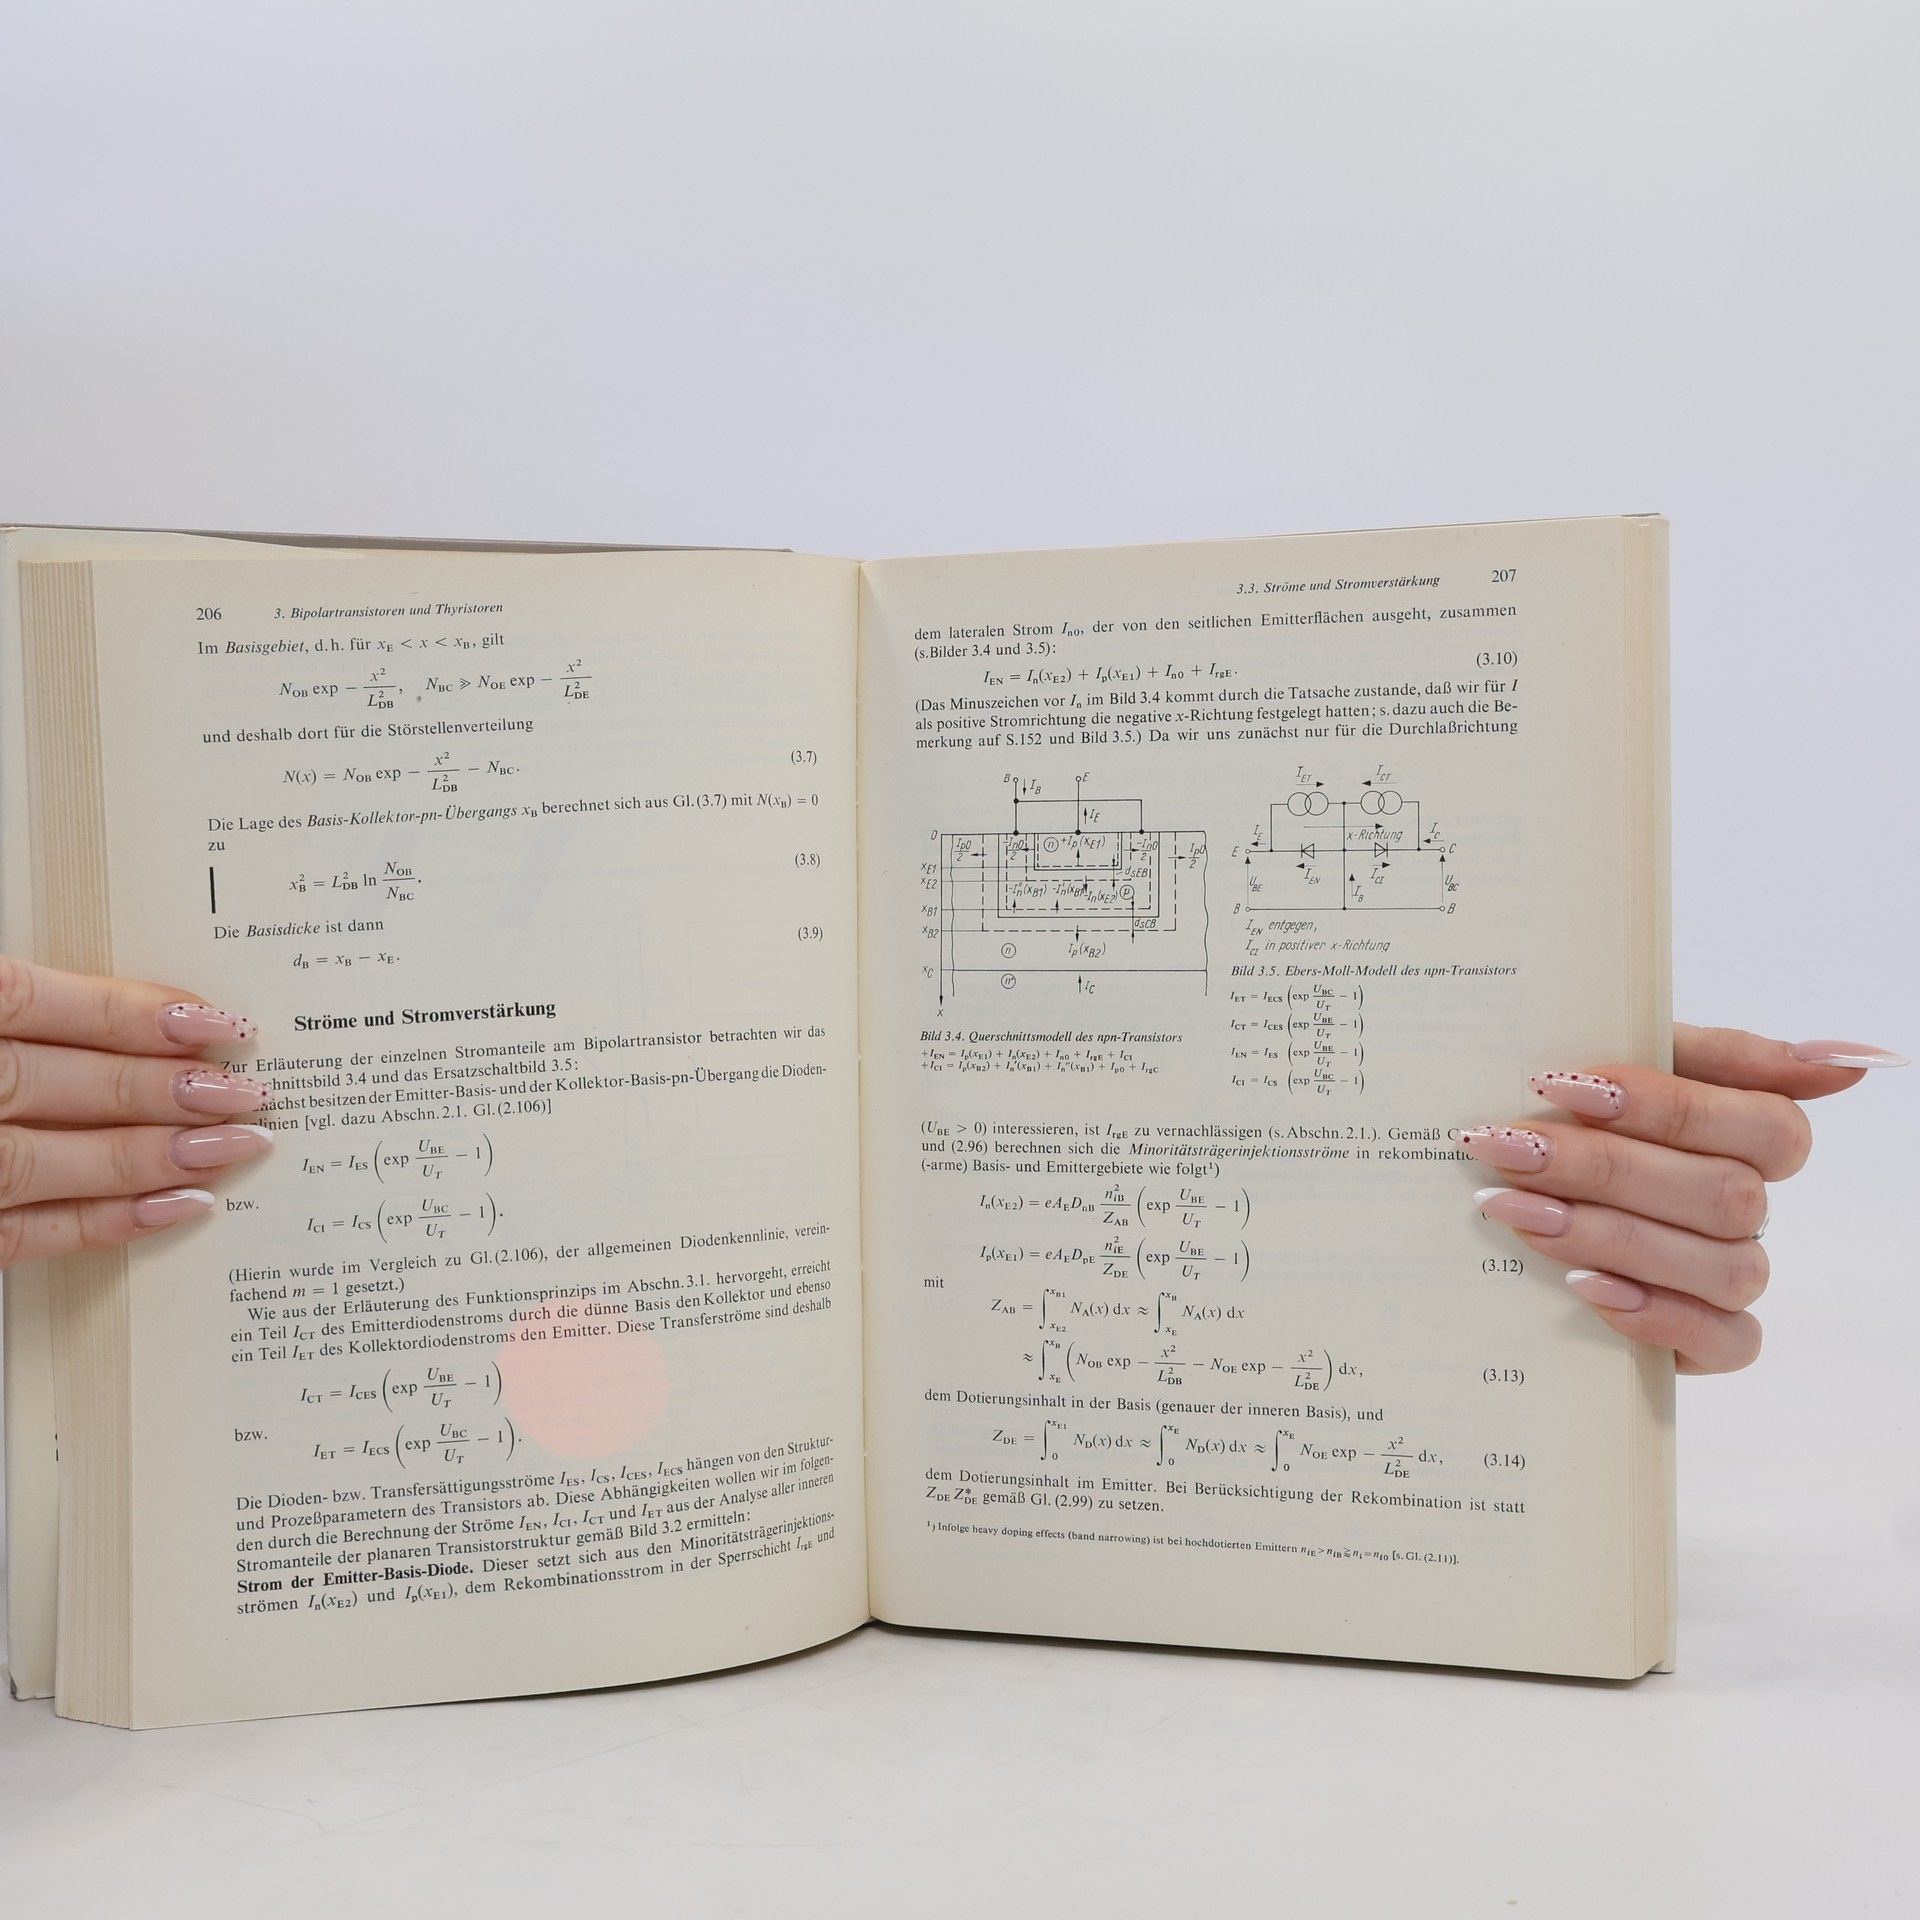 206 3. Bipolartransistoren und Thyristoren
Im Basisgebiet, d.h. für x_E < x < x_B, gilt
N_OB exp − x²/L²_DB, N_BC ⪢ N_OE exp − x²/L²_DE
und deshalb dort für die Störstellenverteilung
N(x) = N_OB exp − x²/L²_DB − N_BC. (3.7)
Die Lage des Basis-Kollektor-pn-Übergangs x_B berechnet sich aus Gl.(3.7) mit N(x_B) = 0
zu
x²_B = L²_DB ln N_OB/N_BC. (3.8)
Die Basisdicke ist dann
d_B = x_B − x_E. (3.9)
Ströme und Stromverstärkung
Zur Erläuterung der einzelnen Stromanteile am Bipolartransistor betrachten wir das
chnittsbild 3.4 und das Ersatzschaltbild 3.5:
nächst besitzen der Emitter-Basis- und der Kollektor-Basis-pn-Übergang die Dioden-
linien [vgl. dazu Abschn. 2.1. Gl. (2.106)]
I_EN = I_ES (exp U_BE/U_T − 1)
bzw.
I_CI = I_CS (exp U_BC/U_T − 1).
(Hierin wurde im Vergleich zu Gl.(2.106), der allgemeinen Diodenkennlinie, verein-
fachend m = 1 gesetzt.)
Wie aus der Erläuterung des Funktionsprinzips im Abschn. 3.1. hervorgeht, erreicht
ein Teil I_CT des Emitterdiodenstroms durch die dünne Basis den Kollektor und ebenso
ein Teil I_ET des Kollektordiodenstroms den Emitter. Diese Transferströme sind deshalb
I_CT = I_CES (exp U_BE/U_T − 1)
bzw.
I_ET = I_ECS (exp U_BC/U_T − 1).
Die Dioden- bzw. Transfersättigungsströme I_ES, I_CS, I_CES, I_ECS hängen von den Struktur-
und Prozeßparametern des Transistors ab. Diese Abhängigkeiten wollen wir im folgen-
den durch die Berechnung der Ströme I_EN, I_CI, I_CT und I_ET aus der Analyse aller inneren
Stromanteile der planaren Transistorstruktur gemäß Bild 3.2 ermitteln:
Strom der Emitter-Basis-Diode. Dieser setzt sich aus den Minoritätsträgerinjektions-
strömen I_n(x_E2) und I_p(x_E1), dem Rekombinationsstrom in der Sperrschicht I_rgE und
3.3. Ströme und Stromverstärkung 207
dem lateralen Strom I_n0, der von den seitlichen Emitterflächen ausgeht, zusammen
(s. Bilder 3.4 und 3.5):
I_EN = I_n(x_E2) + I_p(x_E1) + I_n0 + I_rgE. (3.10)
(Das Minuszeichen vor I_n im Bild 3.4 kommt durch die Tatsache zustande, daß wir für I
als positive Stromrichtung die negative x-Richtung festgelegt hatten; s. dazu auch die Be-
merkung auf S.152 und Bild 3.5.) Da wir uns zunächst nur für die Durchlaßrichtung
B I_B E
I_E
0 I_p0/2 −I_n0/2 n +I_p(x_E1) −I_n0/2 I_p0/2
x_E1 d_SEB
x_E2 −I_n''(x_B1) −I_n'(x_B1) −I_n(x_E2) p
x_B1
x_B2 d_SCB
n I_p(x_B2)
x_C
n⁺ I_C
x
I_ET I_CT
I_E x-Richtung I_C
E C
U_BE I_EN I_CI U_BC
I_B
B B
I_EN entgegen,
I_CI in positiver x-Richtung
Bild 3.4. Querschnittsmodell des npn-Transistors
+I_EN = I_p(x_E1) + I_n(x_E2) + I_n0 + I_rgE + I_CI
+I_CI = I_p(x_B2) + I_n'(x_B1) + I_n''(x_B1) + I_p0 + I_rgC
Bild 3.5. Ebers-Moll-Modell des npn-Transistors
I_ET = I_ECS (exp U_BC/U_T − 1)
I_CT = I_CES (exp U_BE/U_T − 1)
I_EN = I_ES (exp U_BE/U_T − 1)
I_CI = I_CS (exp U_BC/U_T − 1)
(U_BE > 0) interessieren, ist I_rgE zu vernachlässigen (s. Abschn. 2.1.). Gemäß
und (2.96) berechnen sich die Minoritätsträgerinjektionsströme in rekombinatio
(-arme) Basis- und Emittergebiete wie folgt¹)
I_n(x_E2) = eA_E D_nB n²_iB/Z_AB (exp U_BE/U_T − 1)
I_p(x_E1) = eA_E D_pE n²_iE/Z_DE (exp U_BE/U_T − 1) (3.12)
mit
Z_AB = ∫_{x_E2}^{x_B1} N_A(x) dx ≈ ∫_{x_E}^{x_B} N_A(x) dx
≈ ∫_{x_E}^{x_B} (N_OB exp − x²/L²_DB − N_OE exp − x²/L²_DE) dx, (3.13)
dem Dotierungsinhalt in der Basis (genauer der inneren Basis), und
Z_DE = ∫_0^{x_E1} N_D(x) dx ≈ ∫_0^{x_E} N_D(x) dx ≈ ∫_0^{x_E} N_OE exp − x²/L²_DE dx, (3.14)
dem Dotierungsinhalt im Emitter. Bei Berücksichtigung der Rekombination ist statt
Z_DE Z*_DE gemäß Gl. (2.99) zu setzen.
¹) Infolge heavy doping effects (band narrowing) ist bei hochdotierten Emittern n_iE > n_iB ≳ n_i = n_i0 [s. Gl. (2.11)].